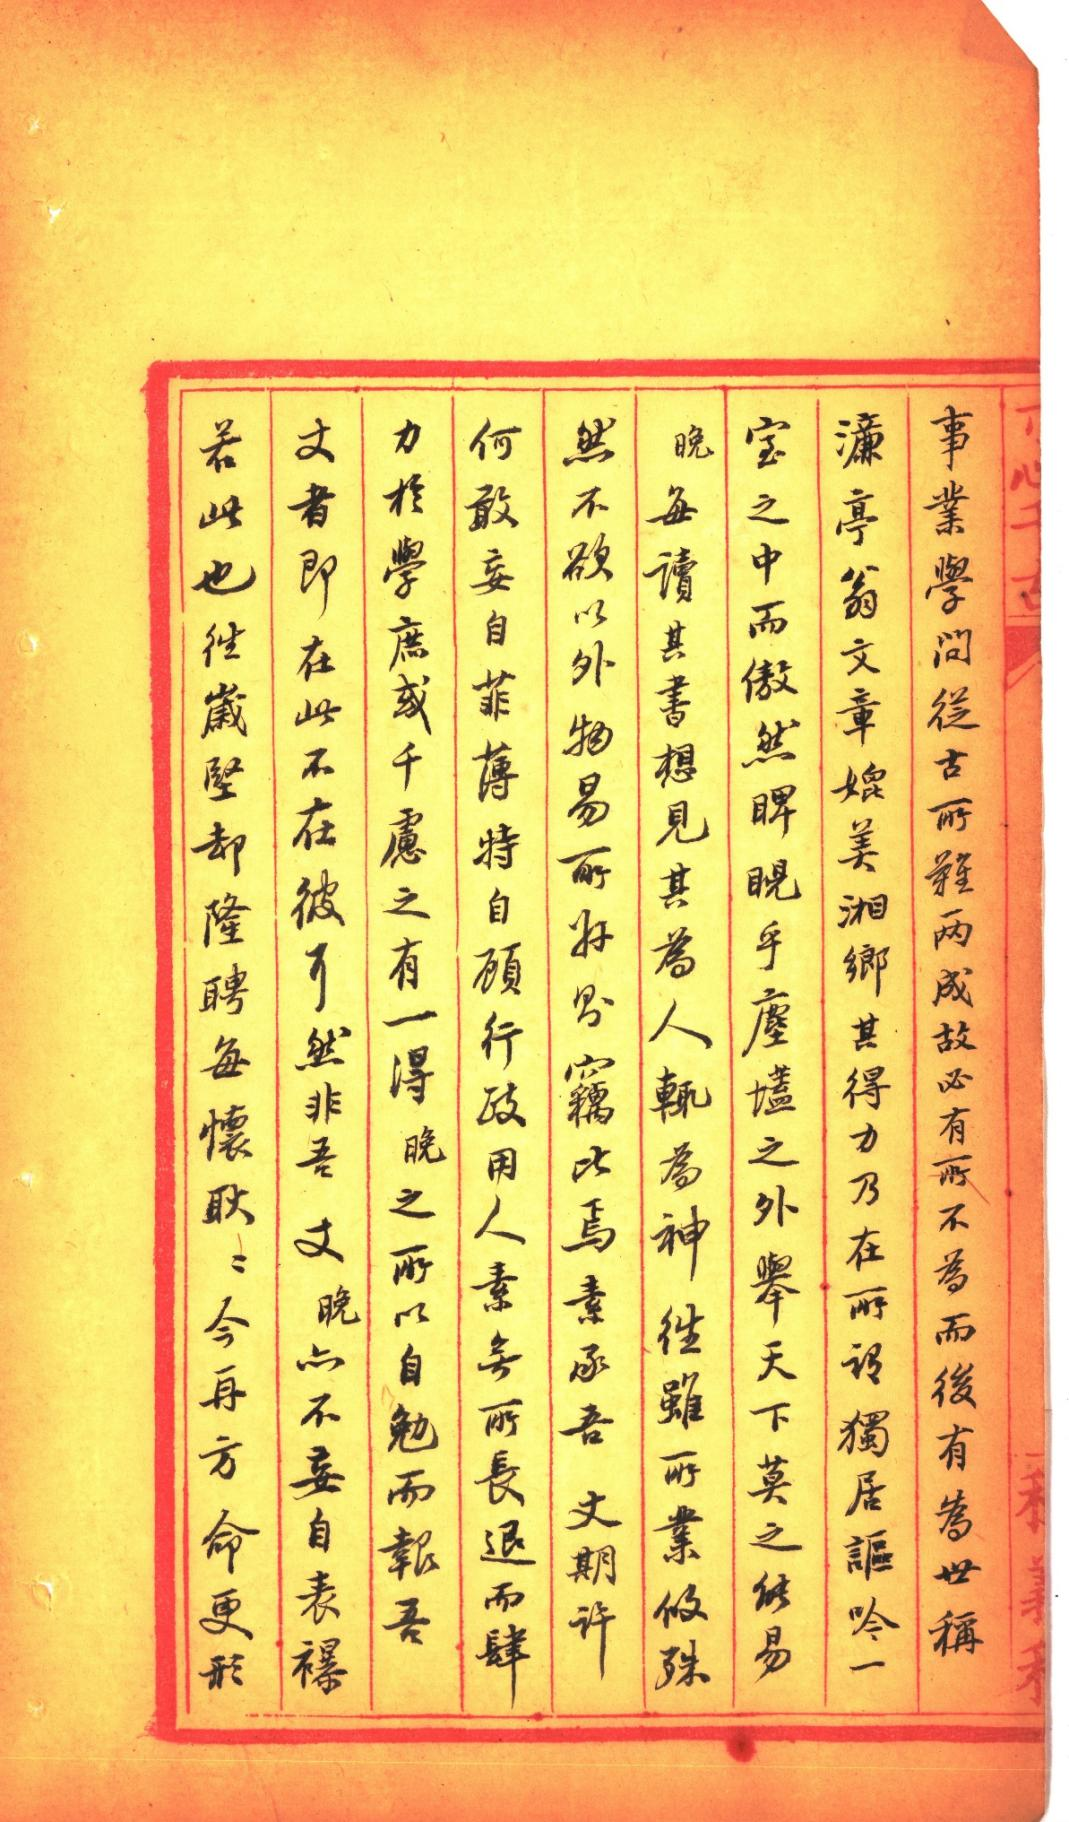 事業學問從古所難兩成故必有所不為而後有為世稱
濂亭翁文章媲美湘鄉其得力乃在所謂獨居謳吟一
室之中而傲然睥睨乎塵壒之外舉天下莫之能易
晚每讀其書想見其為人輒為神往雖所業攸殊
然不欲以外物易所好竊比焉素承吾丈期許
何敢妄自菲薄特自顧行政用人素無所長退而肆
力於學庶或千慮之有一得晚之所以自勉而報吾
丈者即在此不在彼耳然非吾丈晚亦不妄自表襮
若此也往歲堅却隆聘每懷耿〻今再方命更形